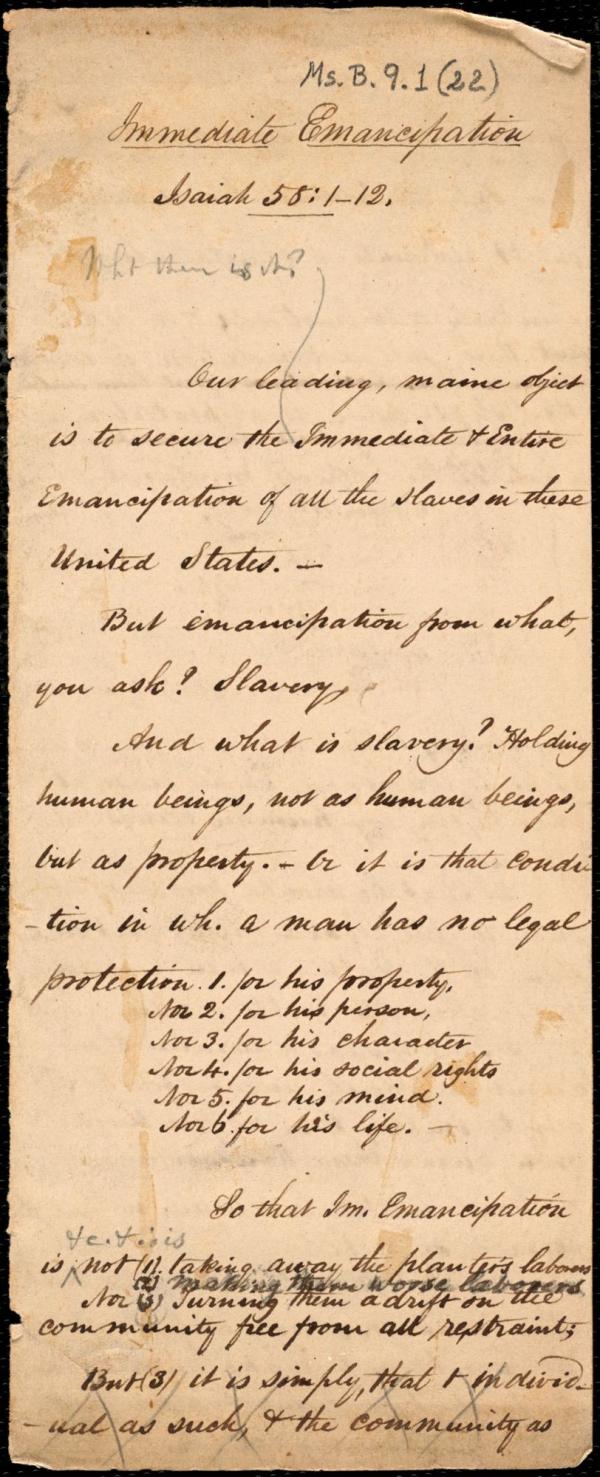 Ms. B. 9. 1 (22)
Immediate Emancipation
Isaiah 58:1-12.
Wht then is it?
Our leading, maine object
is to secure the Immediate & Entire
Emancipation of all the slaves in these
United States. —
But emancipation from what,
you ask? Slavery,
And what is slavery? Holding
human beings, not as human beings,
but as property. - Or it is that condi
-tion in wh. a man has no legal
protection. 1. for his property,
Nor 2. for his person,
Nor 3. for his character
Nor 4. for his social rights
Nor 5. for his mind.
Nor 6. for his life. —
So that Im. Emancipation
is not (1). taking away the planters laborers
(2) making them worse laborers
Nor (3) Turning them adrift on the
community free from all restraint;
But (3) it is simply, that & individ-
-ual as such, & the community as